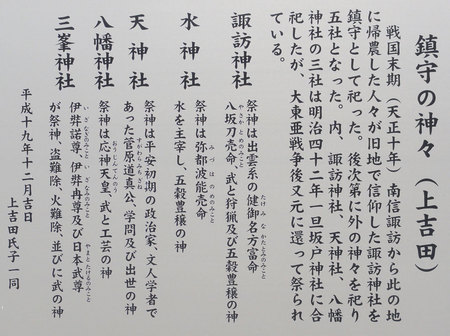 鎮守の神々(上吉田)
戦国末期(天正十年)南信諏訪から此の地
に帰農した人々が旧地で信仰した諏訪神社を
鎮守として祀った。後次第に外の神々を祀り
五社となった。内、諏訪神社、天神社、八幡
神社の三社は明治四十二年一旦坂戸神社に合
祀したが、大東亜戦争後又元に還って祭られ
ている。
諏訪神社
祭神は出雲系の健御名方富命
八坂刀売命、武と狩猟及び五穀豊穣の神
水神社
祭神は弥都波能売命
水を主宰し、五穀豊穣の神
天神社
祭神は平安初期の政治家、文人学者で
あった菅原道真公、学問及び出世の神
八幡神社
祭神は応神天皇、武と工芸の神
三峯神社
伊弉諾尊、伊弉冉尊及び日本武尊
が祭神、盗難除、火難除、並びに武の神
平成十九年十二月吉日
上吉田氏子一同